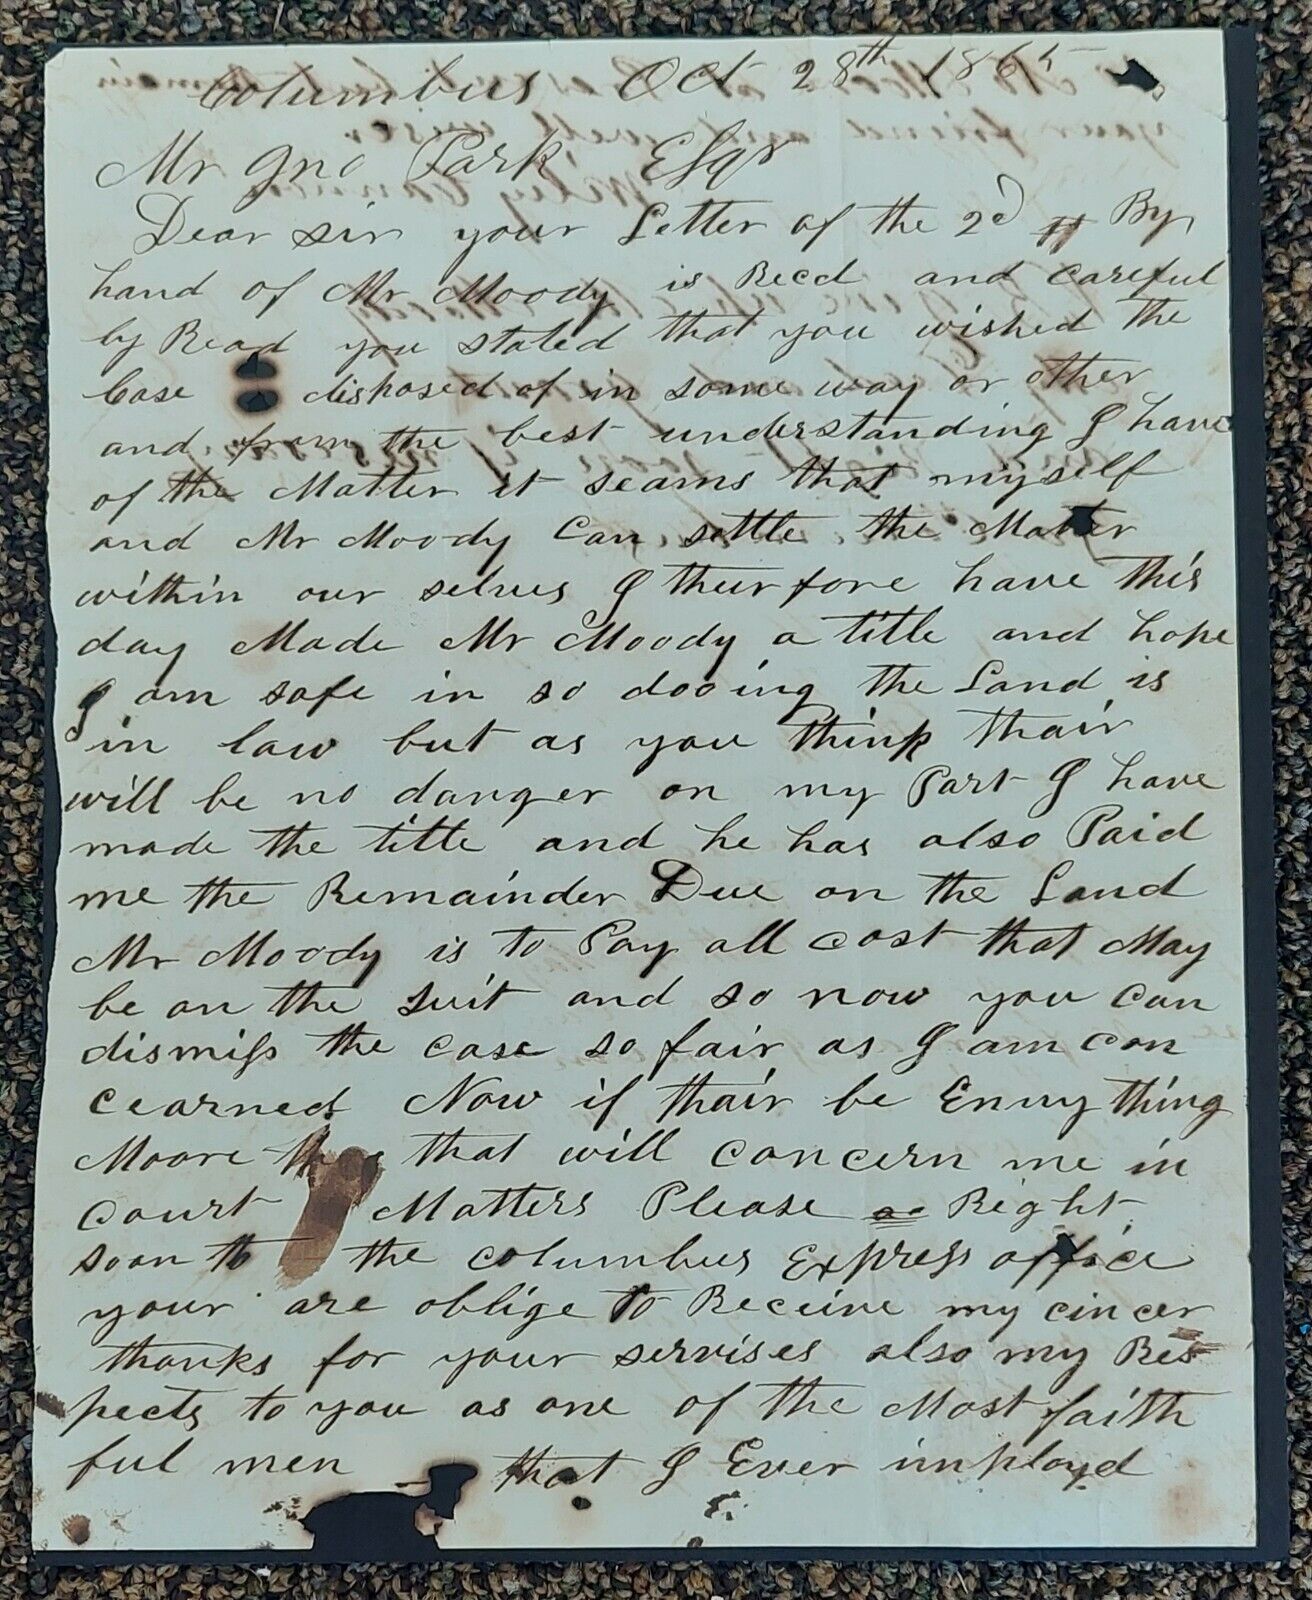 Columbus Oct 28th 1865
Mr Jno Park, Esqr
Dear sir your Letter of the 2d By
hand of Mr Moody is Recd and careful
by Read you stated that you wished the
Case disposed of in some way or other
and from the best understanding I have
of the Matter it seams that myself
and Mr Moody Can settle the Matter
within our selves I theirfore have this
day Made Mr Moody a title and hope
I am safe in so dooing the Land is
in law but as you think thair
will be no danger on my Part I have
made the title and he has also Paid
me the Remainder Due on the Land
Mr Moody is to Pay all cost that May
be on the suit and so now you can
dismiss the case so fair as I am con
cearned Now if thair be Enny thing
Moore that will concern me in
court Matters Please Right
soon to the columbus Express office
your are oblige to Receive my cincer
thanks for your servises also my Res
pects to you as one of the Most faith
ful men that I Ever imployd